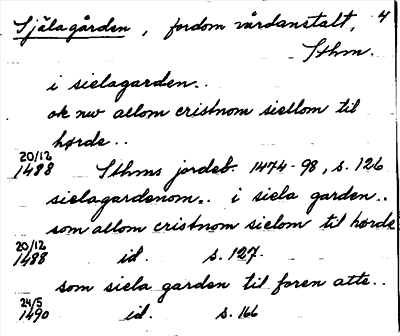 Själagården, fordom vårdanstalt, 4
Sthm.
i sielagarden..
ok nw allom cristnom siellom til
hørde..
20/12
1488 Sthms jordeb. 1474-98, s. 126
sielagardenom.. i siela garden..
som allom cristnom sielom til hørde
20/12
1488 id. s. 127.
som siela garden til foren atte..
24/5
1490 id. s. 166